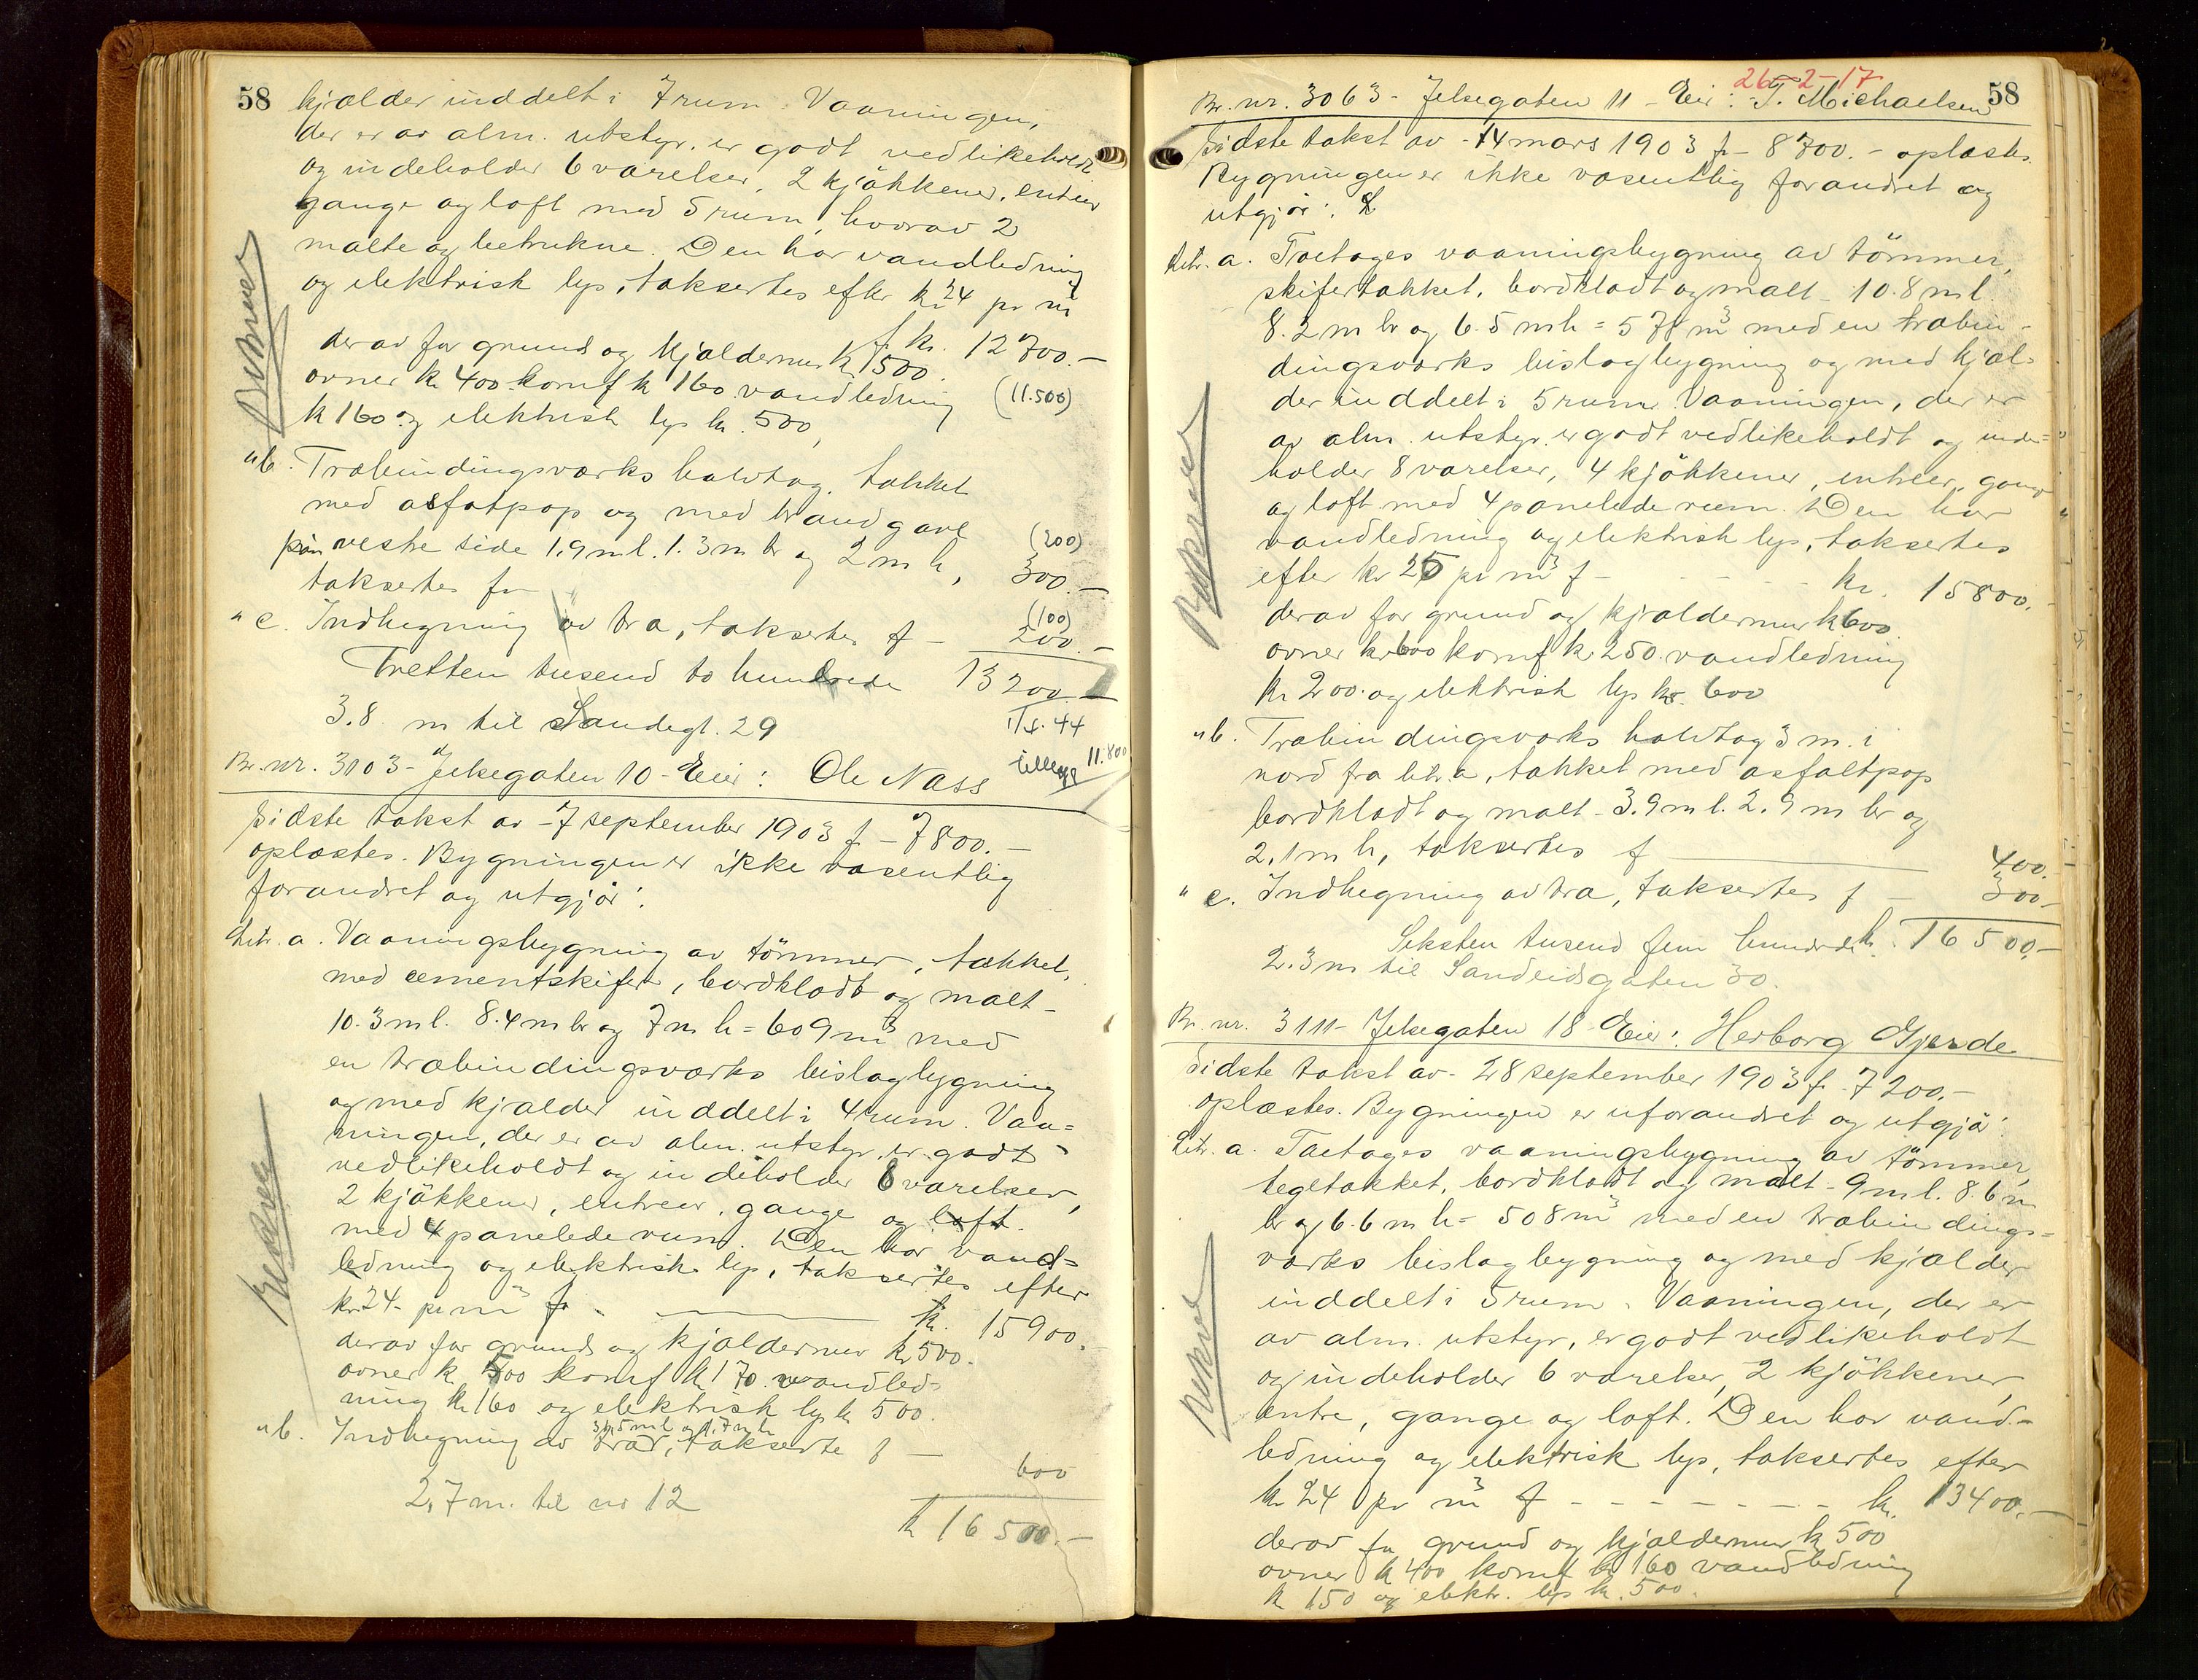 58
kjælder inddelt i 7 rum. Vaaningen,
der er av alm. utstyr, er godt vedlikeholdt
og indeholder 6 værelser, 2 kjökkener, entreer
gange og loft med 5 rum, hvorav 2
malte og betrukne. Den har vandledning
og elektrisk lys, taksertes efter kr 24 pr m³
f. kr. 12700.-
derav for grund og kjældermur kr 1500.
ovner kr 400. komf kr 160 vandledning (11.500)
kr 160 og elektrisk lys kr. 500,
" b. Træbindingsværks halvtag, tækket
med asfatpap og med brandgavl
paa vestre side 1.9 m l. 1.3 m br og 2 m h, (200)
taksertes for 300.-
" c. Indhegning av træ, taksertes f - (100) 200.-
Tretten tusend to hundrede 13200.-
3.8 m til Sandegt. 29
11.800
tillegg
Br. nr. 3103 - Jelsegaten 10 - Eier: Ole Næss
Sidste takst av - 7 september 1903 f - 7800.-
oplæstes. Bygningen er ikke væsentlig
forandret og utgjör:
Litr. a. Vaaningsbygning av tömmer, tækket
med cementskifer, bordklædt og malt -
10.3 m l. 8.4 m br og 7 m h = 609 m³ med
en træbindingsværks bislagbygning
og med kjælder inddelt i 4 rum. Vaa=
ningen, der er av alm. utstyr, er godt
vedlikeholdt og indeholder 8 værelser,
2 kjökkener, entreer, gange og loft
med 4 panelede rum. Den har vand=
ledning og elektrisk lys, taksertes efter
kr 24 - pr m³ for - kr. 15900.-
derav for grund og kjældermur kr 500.
ovner kr 500 komf kr 170 vandled=
ning kr 160 og elektrisk lys kr 500.
" b. Indhegning av træ, taksertes f - 600
2,7 m. til nr 12
kr 16500.-
26-2-17
58
Br. nr. 3063 - Jelsegaten 11 - Eier: T. Michaelsen
Sidste takst av - 14 mars 1903 f - 8700.- oplæstes.
Bygningen er ikke væsentlig forandret og
utgjör:
Litr. a. Toetages vaaningsbygning av tömmer,
skifertækket, bordklædt og malt - 10.8 m l.
8.2 m br og 6.5 m h = 578 m³ med en træbin-
dingsværks bislagbygning og med kjæl=
der inddelt i 5 rum. Vaaningen, der er
av alm. utstyr, er godt vedlikeholdt og inde=
holder 8 værelser, 4 kjökkener, entreer, gange
og loft med 4 panelede rum. Den har
vandledning og elektrisk lys, taksertes
efter kr 25 pr m³ f - - - - kr. 15800.
derav for grund og kjældermur kr 600.
ovner kr 600 komf kr 250. vandledning
kr 200. og elektrisk lys kr. 600
" b. Træbindingsværks halvtag 3 m. i
nord fra litr. a, tækket med asfaltpap
bordklædt og malt - 3.9 m l. 2.9 m br og
2.1 m h, taksertes f 400.
" c. Indhegning av træ, taksertes f - 300.-
Seksten tusend fem hundrede kr. 16500.-
2.3 m til Sandeidsgaten 30.
Br. nr. 3111 - Jelsegaten 18 - Eier: Herborg Gjerde
Sidste takst av - 28 september 1903 f. 7200.-
oplæstes. Bygningen er uforandret og utgjör:
Litr. a. Toetages vaaningsbygning av tömmer,
tegltækket, bordklædt og malt - 9 m l. 8.6 m
br og 6.6 m h = 508 m³ med en træbindings=
værks bislagbygning og med kjælder
inddelt i 5 rum. Vaaningen, der er
av alm. utstyr, er godt vedlikeholdt
og indeholder 6 værelser, 2 kjökkener,
entre, gange og loft. Den har vand-
ledning og elektrisk lys, taksertes efter
kr 24 pr m³ f - - - - - - - kr. 13400.-
derav for grund og kjældermur kr 500
ovner kr 400 komf kr 160 vandledning
kr 150 og elektr. lys kr. 500.